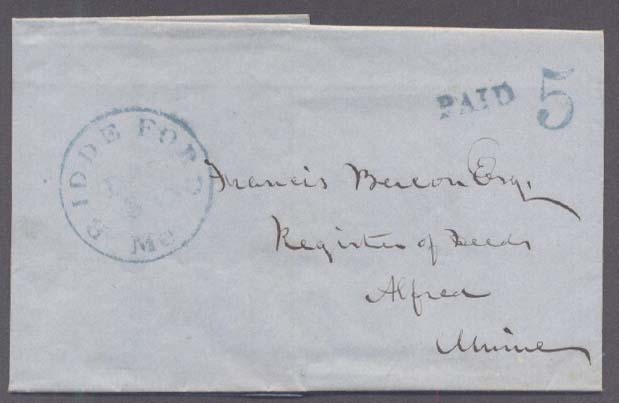 PAID 5
BIDDEFORD
Me
Francis Bacon Esq,
Register of Deeds
Alfred
Maine